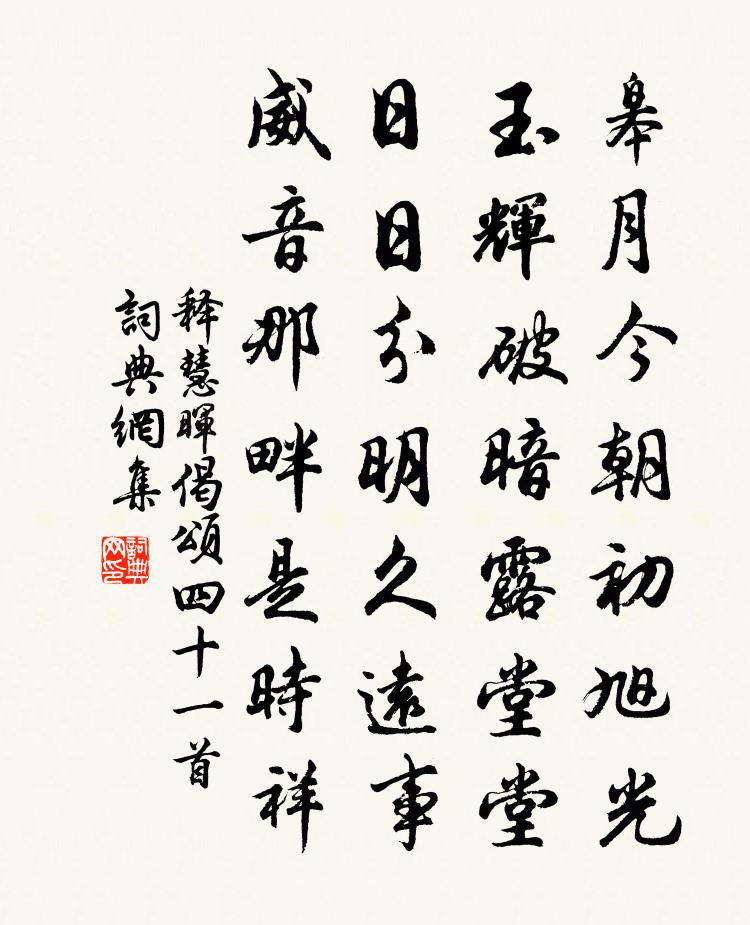 皋月今朝初旭光
玉輝破暗露堂堂
日日分明久遠事
威音那畔是時祥
释慧暉偈頌四十一首
詞典網集
詞典网印